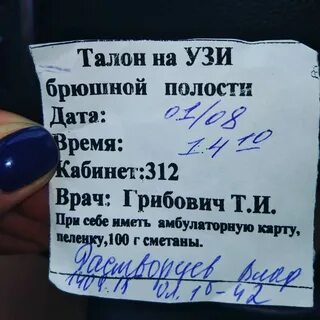 Талон на УЗИ
брюшной полости
Дата: 01/08
Время: 14 10
Кабинет:312
Врач: Грибович Т.И.
При себе иметь амбулаторную карту,
пеленку,100 г сметаны.